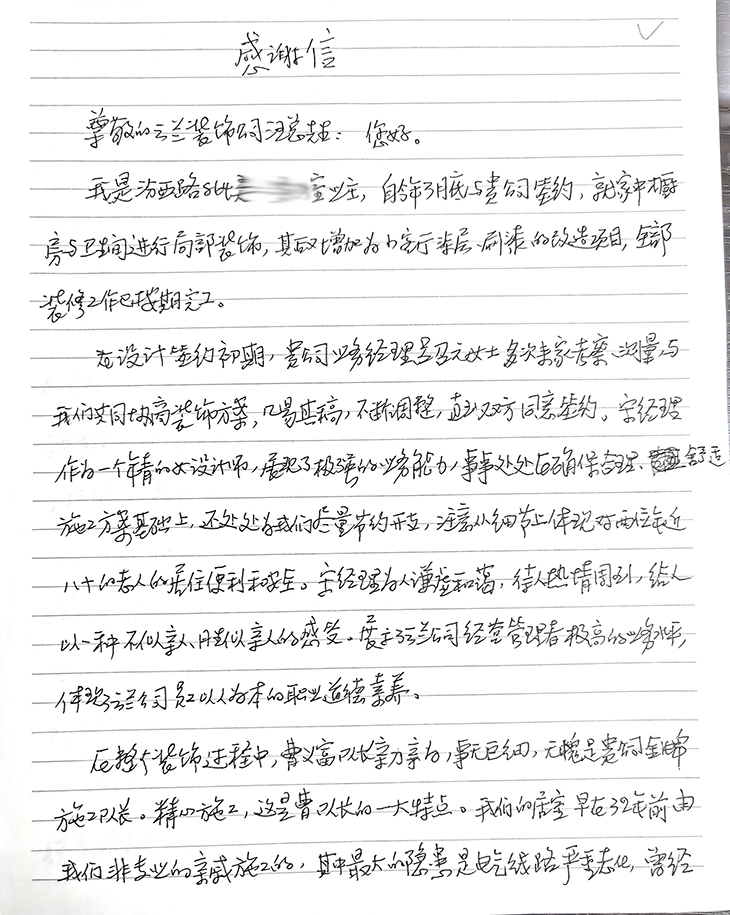 感谢信
尊敬的云兰装饰公司汪总先生： 您好。
我是汾西路 室业主，自今年3月底与贵公司签约，就家中橱
房与卫生间进行局部装饰，其后又增加为小室行涂层、刷漆的改造项目，全部
装修工作已按期完工。
在设计签约初期，贵公司业务经理 女士多次来家考察、测量，与
我们共同协商装饰方案，几易其稿，不断调整，直到双方同意签约。宋经理
作为一个年青的女设计师，展现了极强的业务能力，事事处处在确保合理、舒适
施工方案基础上，还处处为我们尽量节约开支，注意从细节上体现对两位年近
八十的老人的居住便利和安全。宋经理为人谦虚和蔼，待人热情周到，给人
以一种不似亲人、胜似亲人的感受。展示了云兰公司经营管理者极高的业务水平，
体现了云兰公司员工以人为本的职业道德素养。
在整个装饰过程中，曹义富队长亲力亲为，事无巨细，无愧是贵公司金牌
施工队长。精心施工，这是曹队长的一大特点。我们的居室早在32年前由
我们非专业的亲戚施工的，其中最大的隐患是电气线路严重老化，曾经